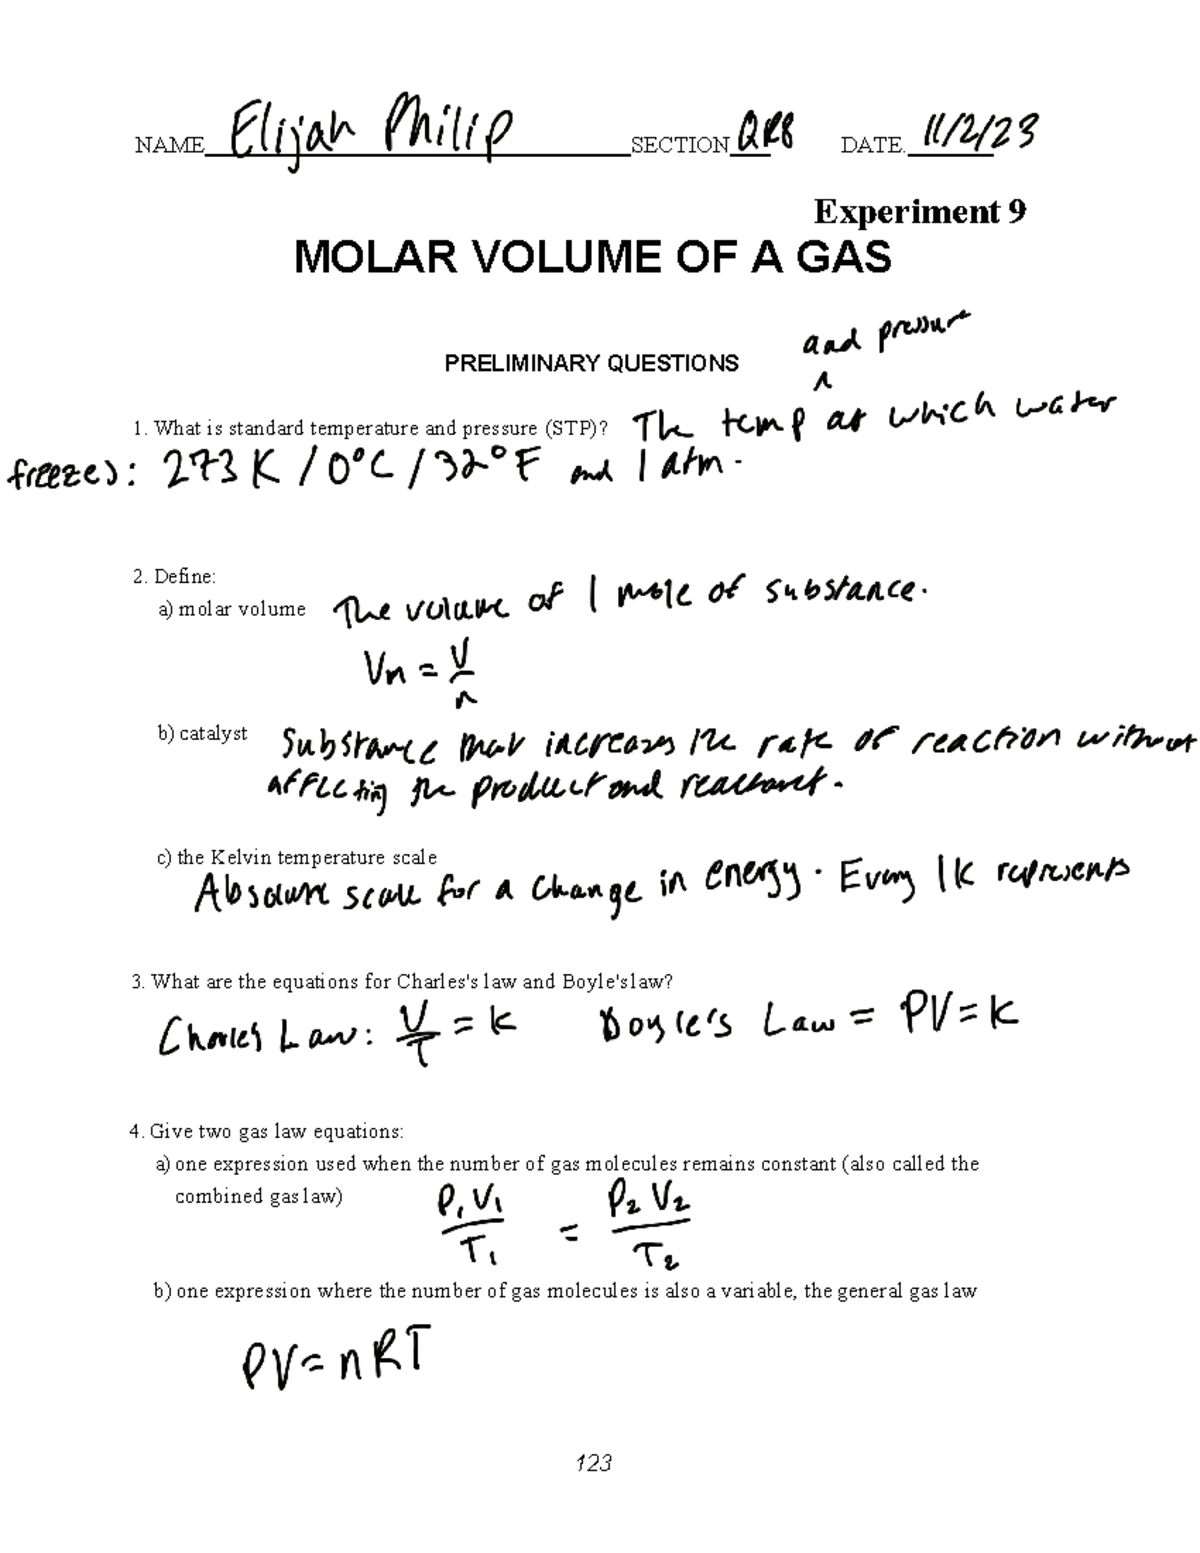 NAME Elijah Philip SECTION QR8 DATE. 11/2/23
Experiment 9
MOLAR VOLUME OF A GAS
and pressure
PRELIMINARY QUESTIONS
^
1. What is standard temperature and pressure (STP)? The temp at which water
freezes: 273 K / 0°C / 32°F and 1 atm.
2. Define:
a) molar volume The volume of 1 mole of substance.
Vn = V/n
b) catalyst Substance that increases the rate of reaction without
affecting the product and reactant.
c) the Kelvin temperature scale
Absolute scale for a change in energy. Every 1K represents
3. What are the equations for Charles's law and Boyle's law?
Charles Law: V/T = K Boyle's Law = PV = K
4. Give two gas law equations:
a) one expression used when the number of gas molecules remains constant (also called the
combined gas law) P₁V₁/T₁ = P₂V₂/T₂
b) one expression where the number of gas molecules is also a variable, the general gas law
PV = nRT
123